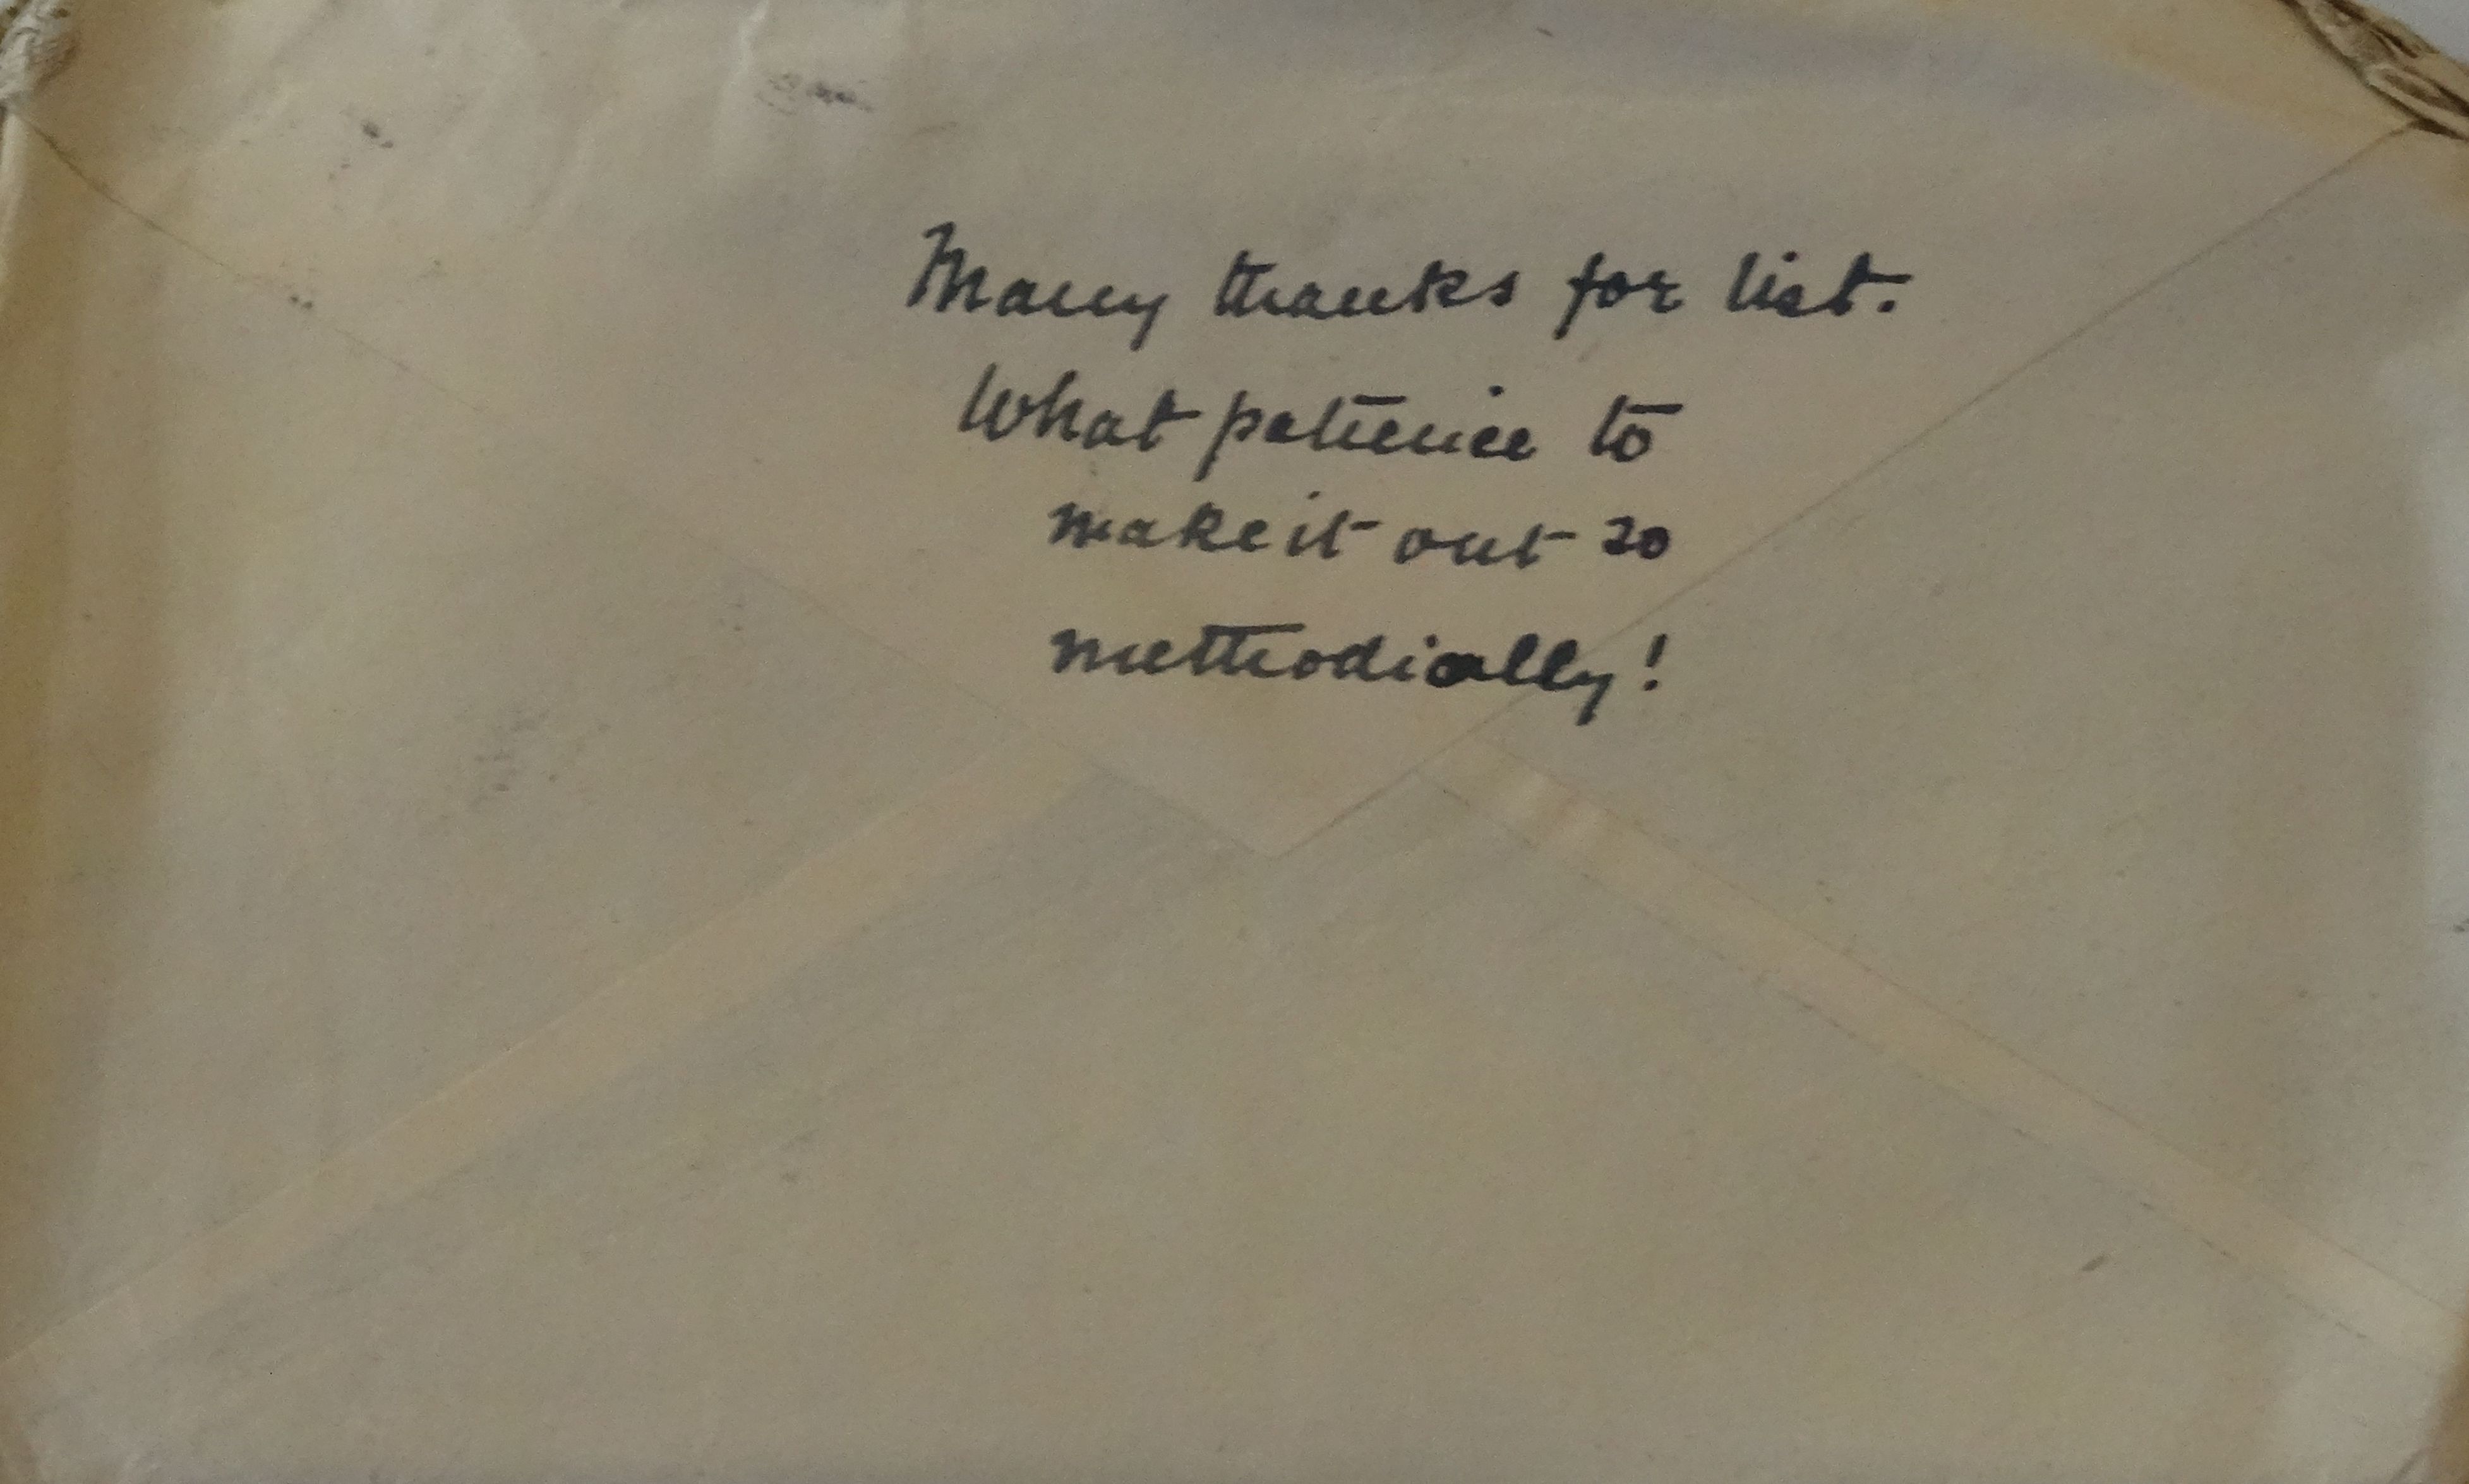 Many thanks for list.
What patience to
make it out so
methodically!